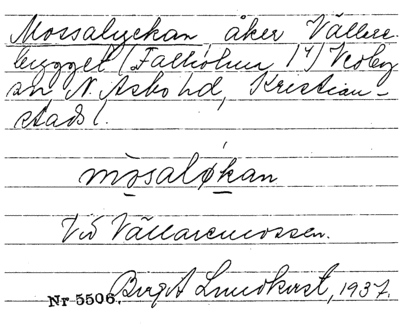 Mossalyckan åker Vällare-
bygget (Falhöhus 1⁴) Vedby
sn N. Åsbo hd, Kristian-
stads l.
mòsaløkan
Vid Vällaremossen.
Nr 5506. Birgit Lundkvist, 1937.